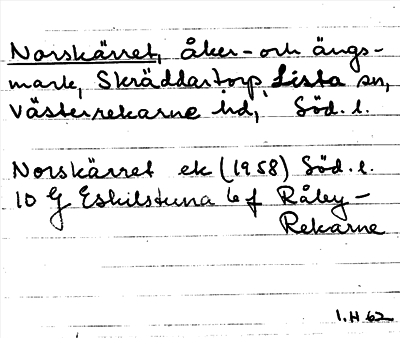 Norskärret, åker- och ängs-
mark, Skräddartorp, Lista sn,
Västerrekarne hd, Söd. l.
Norskärret ek (1958) Söd. l.
10 G Eskilstuna 6 f Råby-
Rekarne
I.H 62